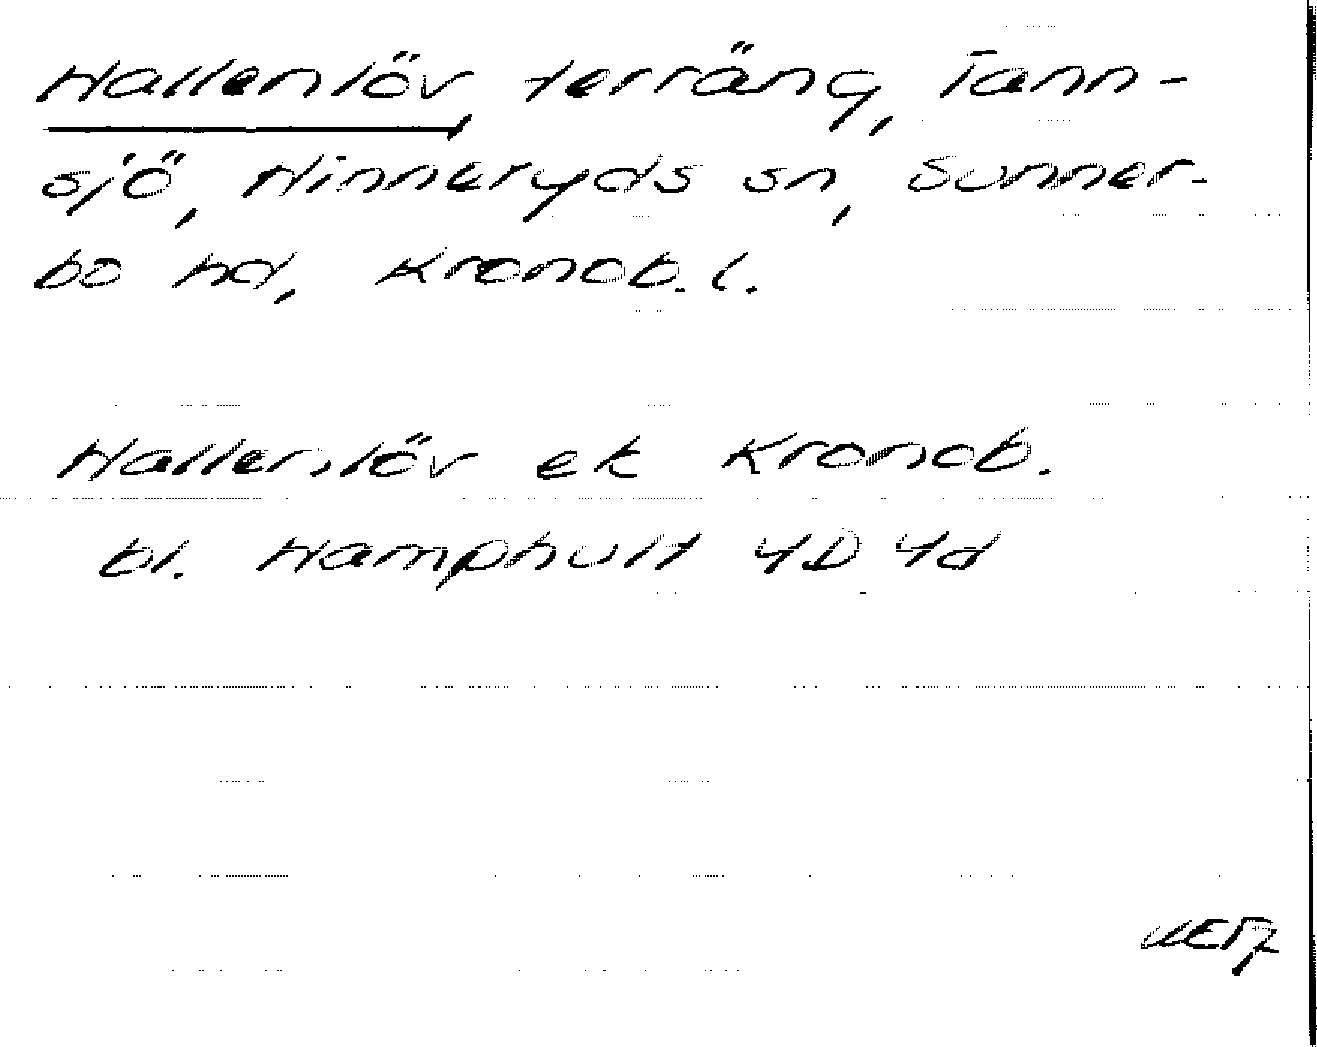 Hallenlöv, terräng, Tann-
sjö, Hinneryds sn, Sunner-
bo hd, Kronob. l.
Hallenlöv ek Kronob.
bl. Hamphult 4D 4d